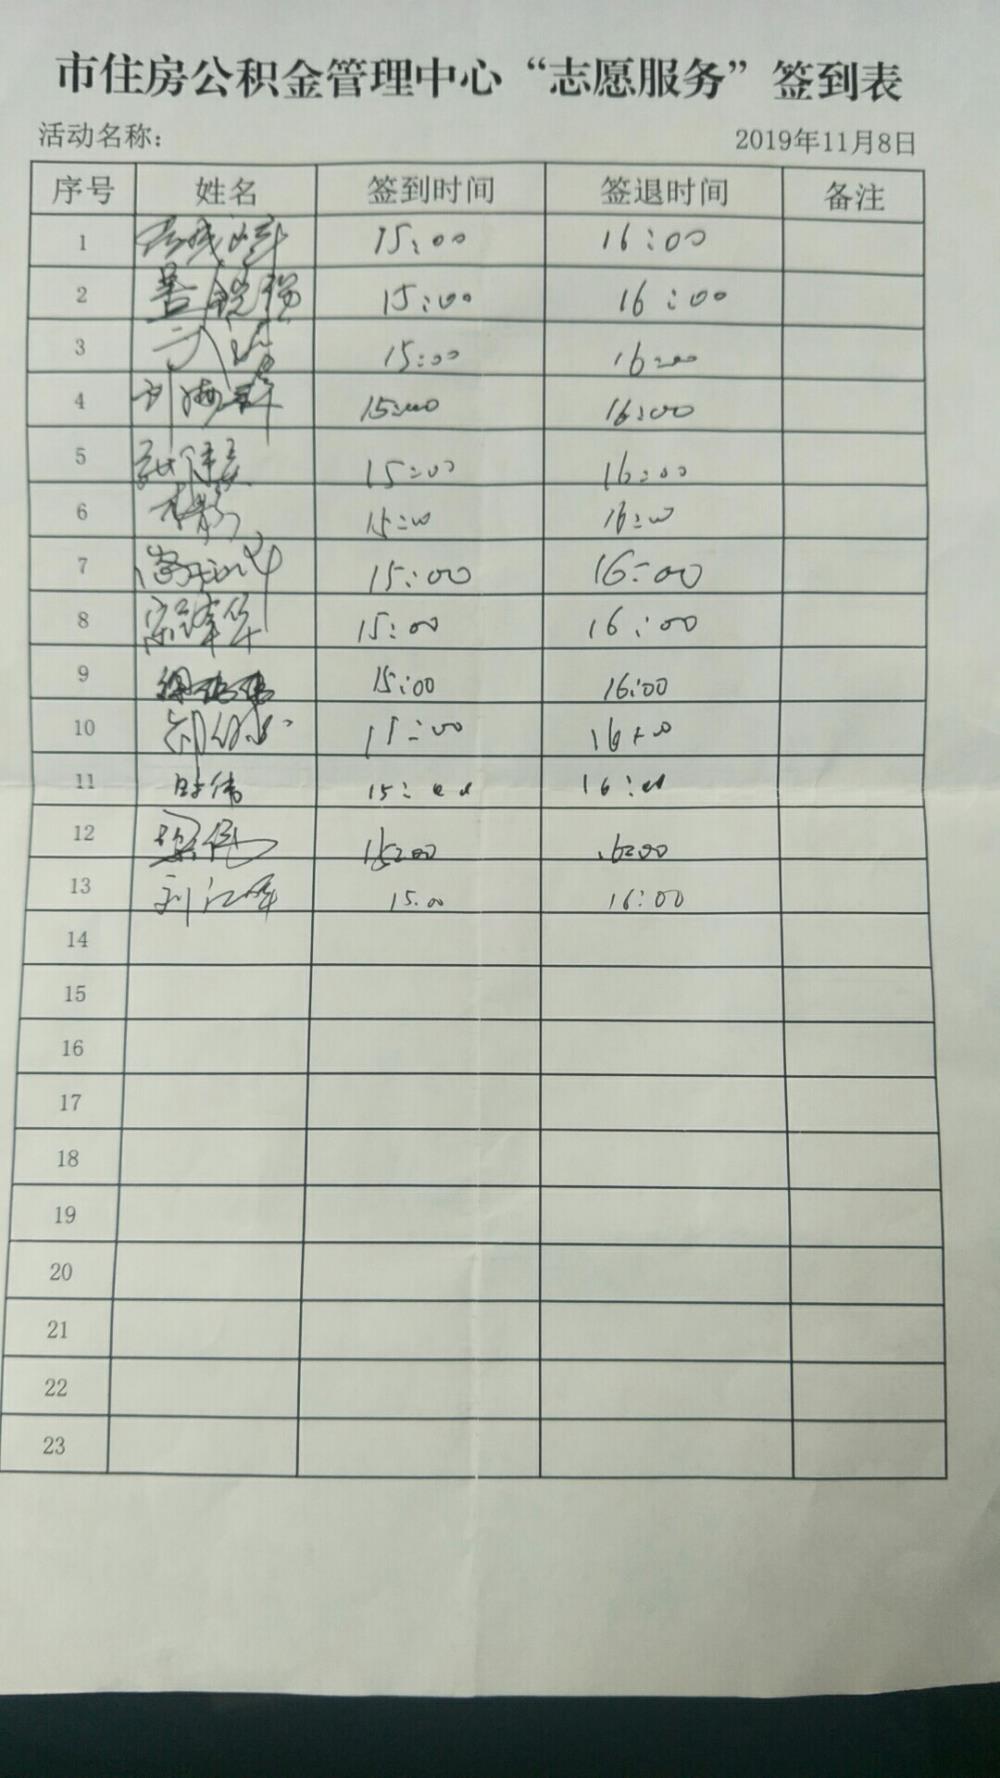 市住房公积金管理中心“志愿服务”签到表
活动名称： 2019年11月8日
序号 姓名 签到时间 签退时间 备注
1 15:00 16:00
2 15:00 16:00
3 15:00 16:00
4 15:00 16:00
5 15:00 16:00
6 15:00 16:00
7 15:00 16:00
8 15:00 16:00
9 15:00 16:00
10 15:00 16:00
11 时伟 15:00 16:00
12 梁伟 15:00 16:00
13 刘江峰 15:00 16:00
14
15
16
17
18
19
20
21
22
23